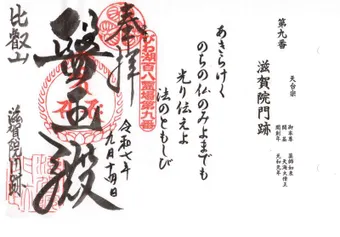 第九番
天台宗
滋賀院門跡
御本尊 薬師如来
開基 天海大僧正
開創年 元和元年
あきらけく
のちの仏のみよまでも
光り伝えよ
法のともしび
奉拝
びわ湖百八霊場第九番
令和七年
九月十四日
醫王殿
比叡山
滋賀院門跡